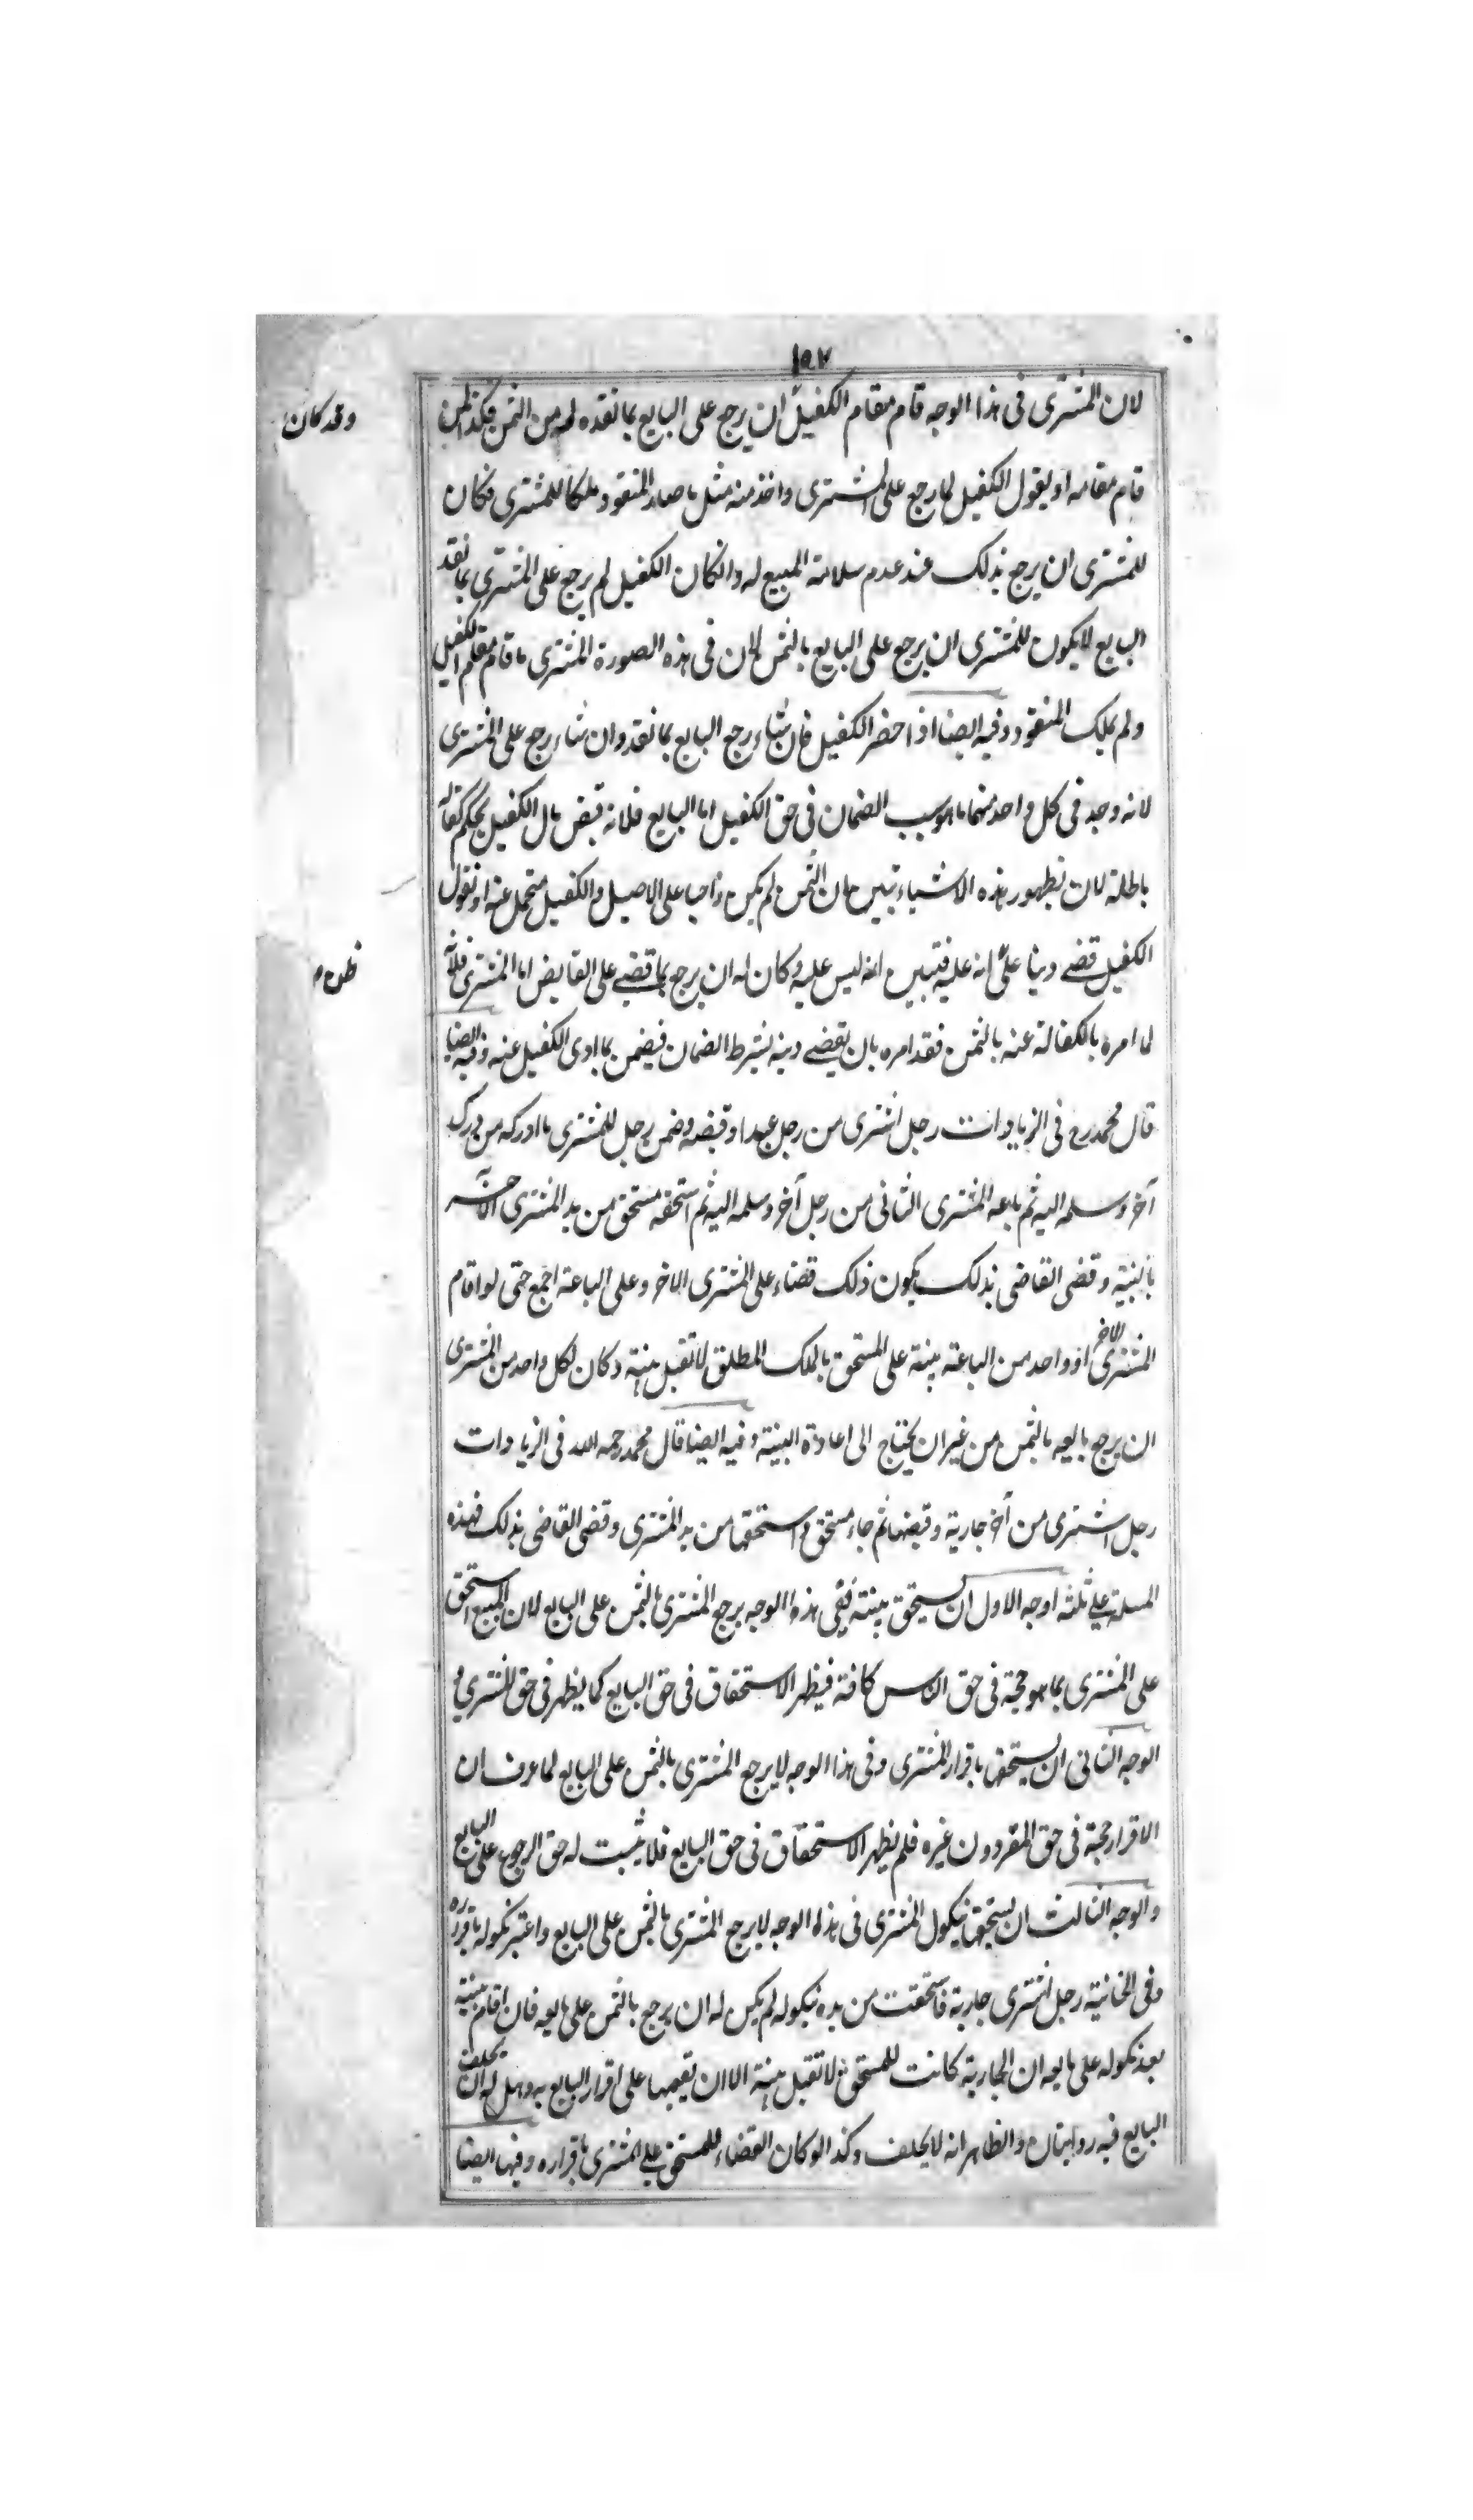 ١٩٧
لان المشترى فى هذا الوجه قام مقام الكفيل ان يرجع على البايع بما نقده له من الثمن فكذا لمن
وقد كان
قام مقامه او يقول الكفيل لما رجع على المشترى واخذ منه مثل ما صار المنقود ملكا للمشترى فكان
للمشترى ان يرجع بذلك عند عدم سلامة المبيع له وانكان الكفيل لم يرجع على المشترى بما نقد
البايع لا يكون للمشترى ان يرجع على البايع بالثمن لان فى هذه الصورة المشترى ما قام مقام الكفيل
ولم يملك المنقود وفيه ايضا اذا حضر الكفيل فان شاء رجع البايع بما نقد وان شاء رجع على المشترى
لانه وجد فى كل واحد منهما ما هو سبب الضمان فى حق الكفيل اما البايع فلانه قبض مال الكفيل بحكم كفالة
باطلة لان بظهور هذه الاشياء تبين ان الثمن لم يكن واجبا على الاصيل والكفيل متحمل عنه او نقول
الكفيل قضى دينا على انه عليه فتبين انه ليس عليه وكان له ان يرجع بما قضى على القابض اما المشترى فلانه
ظن
لما امره بالكفالة عنه بالثمن فقد امره بان يقضى دينه بشرط الضمان فيضمن بما ادى الكفيل عنه وفيه ايضا
قال محمد رح فى الزيادات رجل اشترى من رجل عبدا وقبضه وضمن رجل للمشترى ما ادركه من درك
آخر وسلمه اليه ثم باعه المشترى الثانى من رجل آخر وسلمه اليه ثم استحقه مستحق من يد المشترى الآخر
بالبنية وقضى القاضى بذلك يكون ذلك قضاء على المشترى الاخر وعلى الباعة اجمع حتى لو اقام
المشترى الاخر او واحد من الباعة بينة على المستحق بالملك المطلق لا تقبل بينة وكان لكل واحد من المشترى
ان يرجع بايعه بالثمن من غير ان يحتاج الى اعادة البينة وفيه ايضا قال محمد رحمه الله فى الزيادات
رجل اشترى من آخر جارية وقبضها ثم جاء مستحق واستحقها من يد المشترى وقضى القاضى بذلك فهذه
المسلة على ثلثه اوجه الاول ان يستحق ببينته ففى هذا الوجه يرجع المشترى بالثمن على البايع لان المبيع استحق
على المشترى بما هو حجة فى حق الناس كافة فيظهر الاستحقاق فى حق البايع كما يظهر فى حق المشترى و
الوجه الثانى ان يستحقها باقرار المشترى وفى هذا الوجه لا يرجع المشترى بالثمن على البايع لما عرف ان
الاقرار حجة فى حق المقر دون غيره فلم يظهر الاستحقاق فى حق البايع فلا يثبت له حق الرجوع على البايع
والوجه الثالث ان يستحقها بنكول المشترى فى هذا الوجه لا يرجع المشترى بالثمن على البايع واعتبر نكوله باقراره
وفى الخانية رجل اشترى جارية فاستحقت من يده بنكوله لم يكن له ان يرجع بالثمن على بايعه فان اقام بينة
بعد نكوله على بايعه ان الجارية كانت للمستحق لا تقبل بينة الا ان يقيمها على اقرار البايع به وهل له ان يحلف
البايع فيه روايتان والظاهر انه لا يحلف وكذا لو كان القضاء للمستحق على المشترى باقراره وفيها ايضا